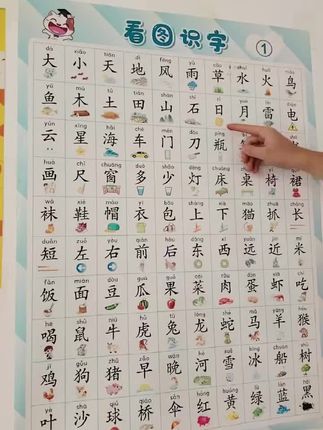 看图识字 1
dà xiǎo tiān dì fēng yǔ cǎo shuǐ huǒ niǎo
大 小 天 地 风 雨 草 水 火 鸟
yú mù tǔ tián shān shí rì yuè léi diàn
鱼 木 土 田 山 石 日 月 雷 电
yún xīng hǎi chē mén dāo píng
云 星 海 车 门 刀 瓶
huà chǐ chuāng duō shǎo dēng chuáng
画 尺 窗 多 少 灯 床 桌 椅 裙
wà xié mào yī bāo shàng xià māo zhuā cháng
袜 鞋 帽 衣 包 上 下 猫 抓 长
duǎn zuǒ yòu qián hòu dōng xī yuǎn jìn mǐ
短 左 右 前 后 东 西 远 近 米
fàn miàn dòu guā guǒ cài dàn ròu xiā chī
饭 面 豆 瓜 果 菜 蛋 肉 虾 吃
hē shǔ niú hǔ tù lóng shé mǎ yáng hóu
喝 鼠 牛 虎 兔 龙 蛇 马 羊 猴
jī gǒu zhū zǎo wǎn hé xuě bīng chuán shù
鸡 狗 猪 早 晚 河 雪 冰 船 树
yè shā qiú qiáo sǎn hóng huáng lǜ lán hēi
叶 沙 球 桥 伞 红 黄 绿 蓝 黑